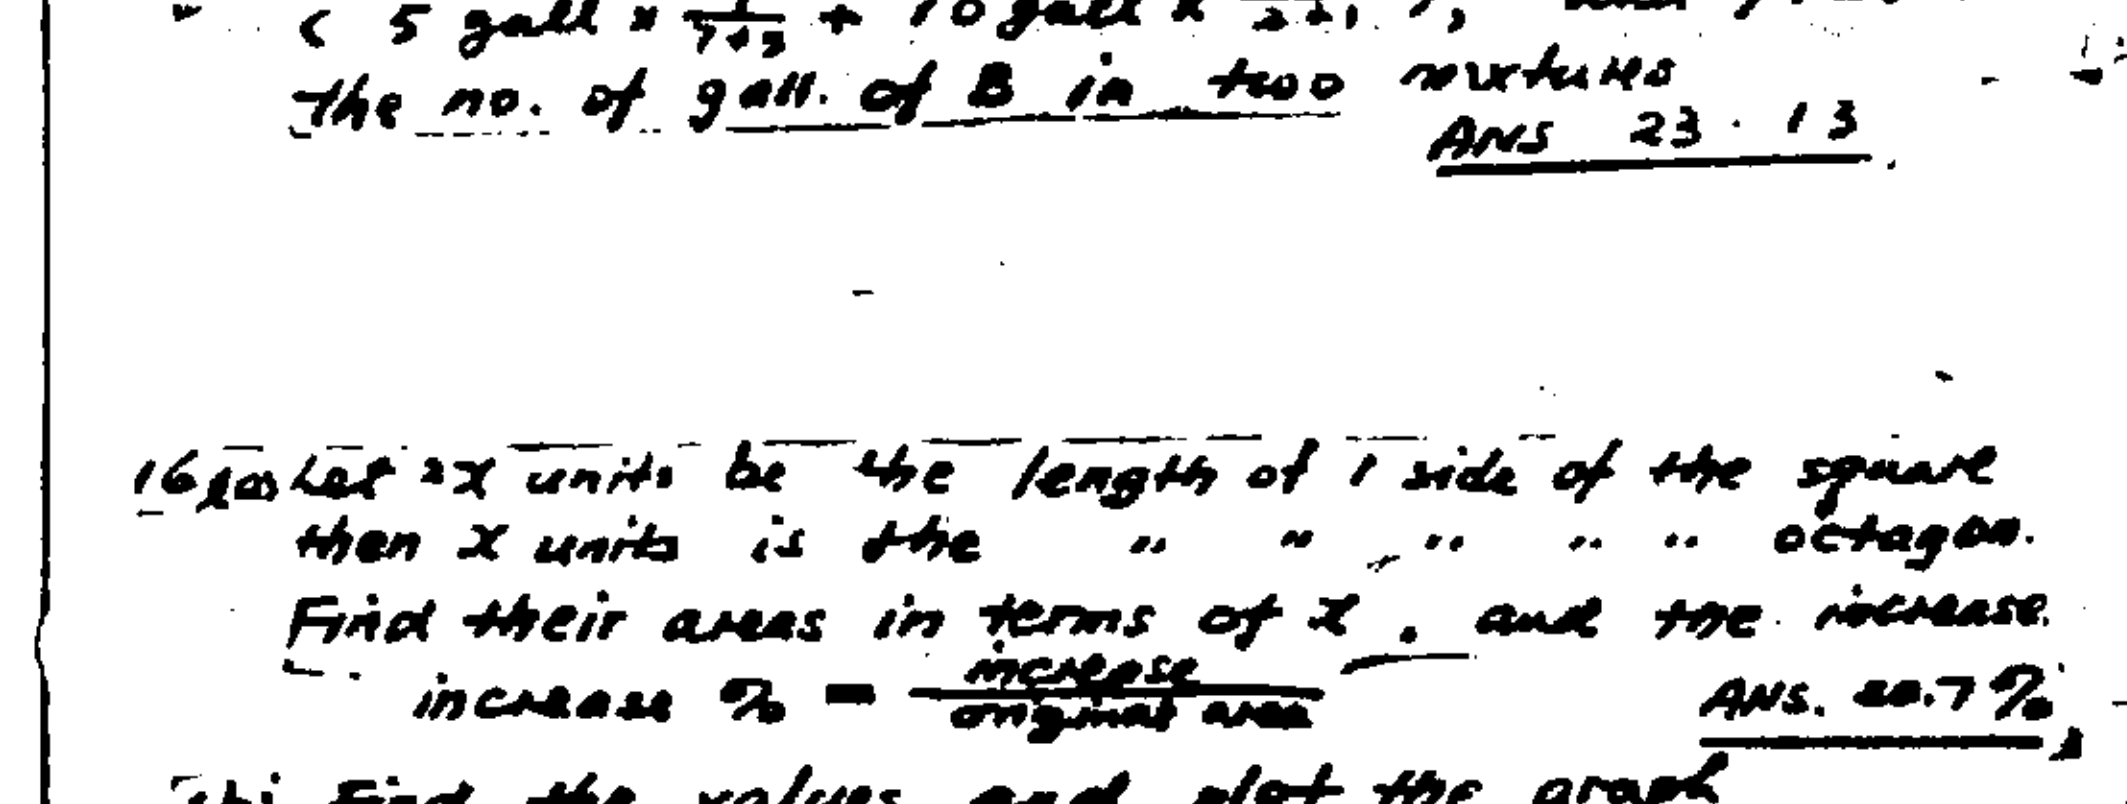 ( 5 gall × 1/7+3 + 10 gall ×
the no. of gall. of B in two mixtures
ANS 23 . 13
16 (a) Let 2x units be the length of 1 side of the square
then x units is the " " " " " octagon.
Find their areas in terms of x , and the increase.
increase % = increase/original area
ANS. 20.7 %
(b) Find the values and plot the graph